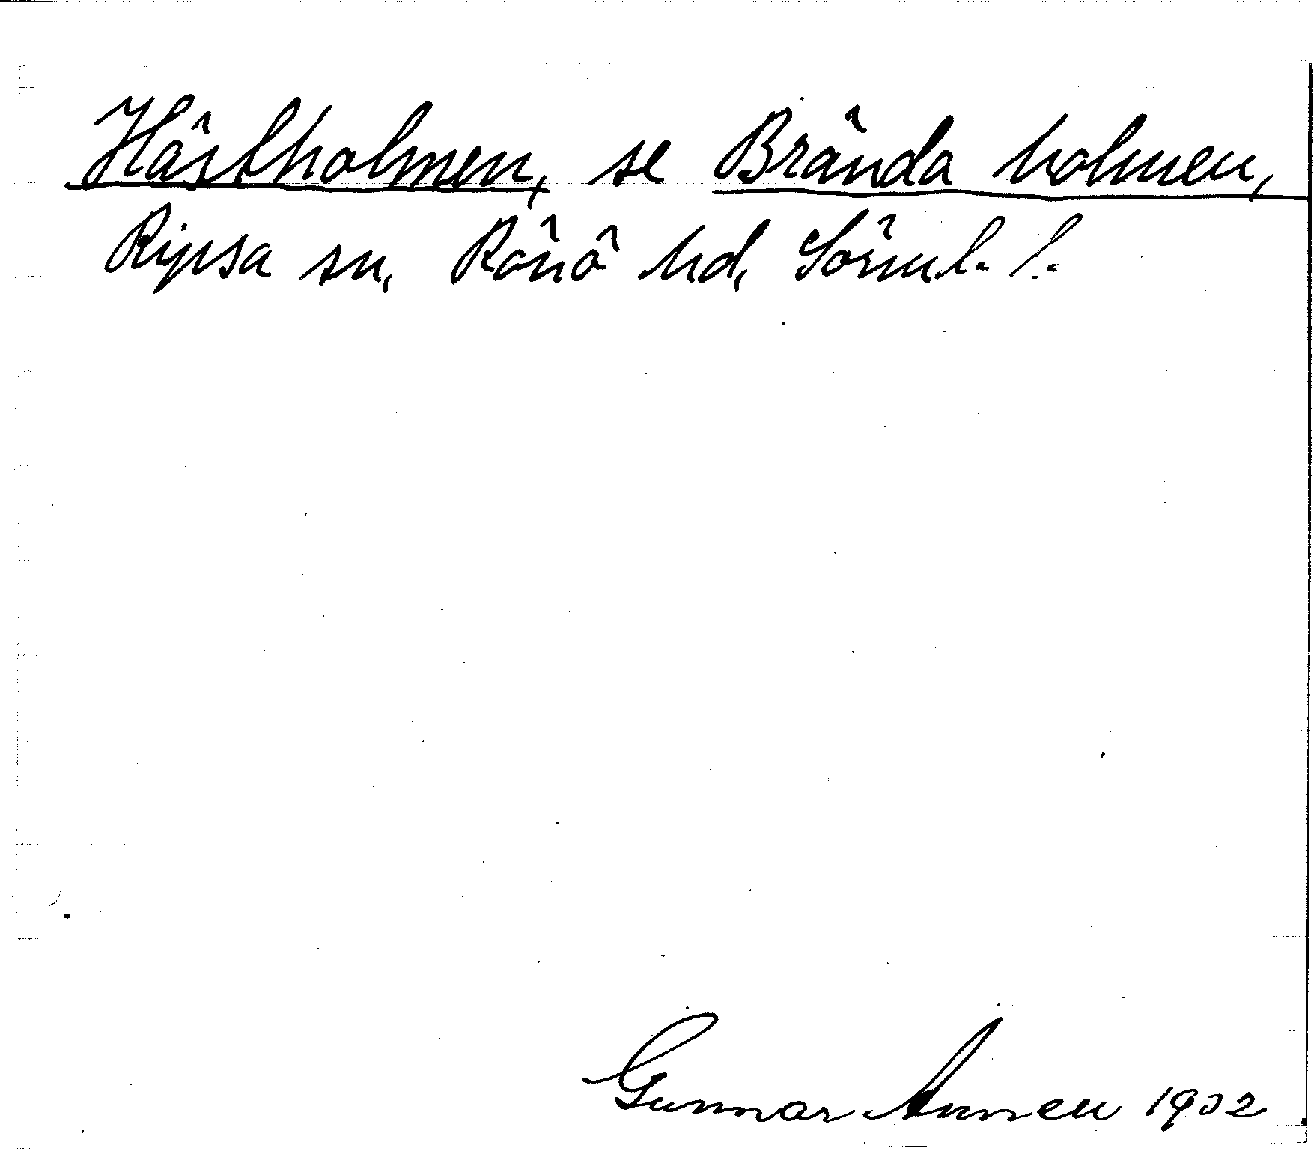 Hästholmen, se Brända holmen,
Ripsa sn, Rönö hd, Sörml. l.
Gunnar Annell 1932